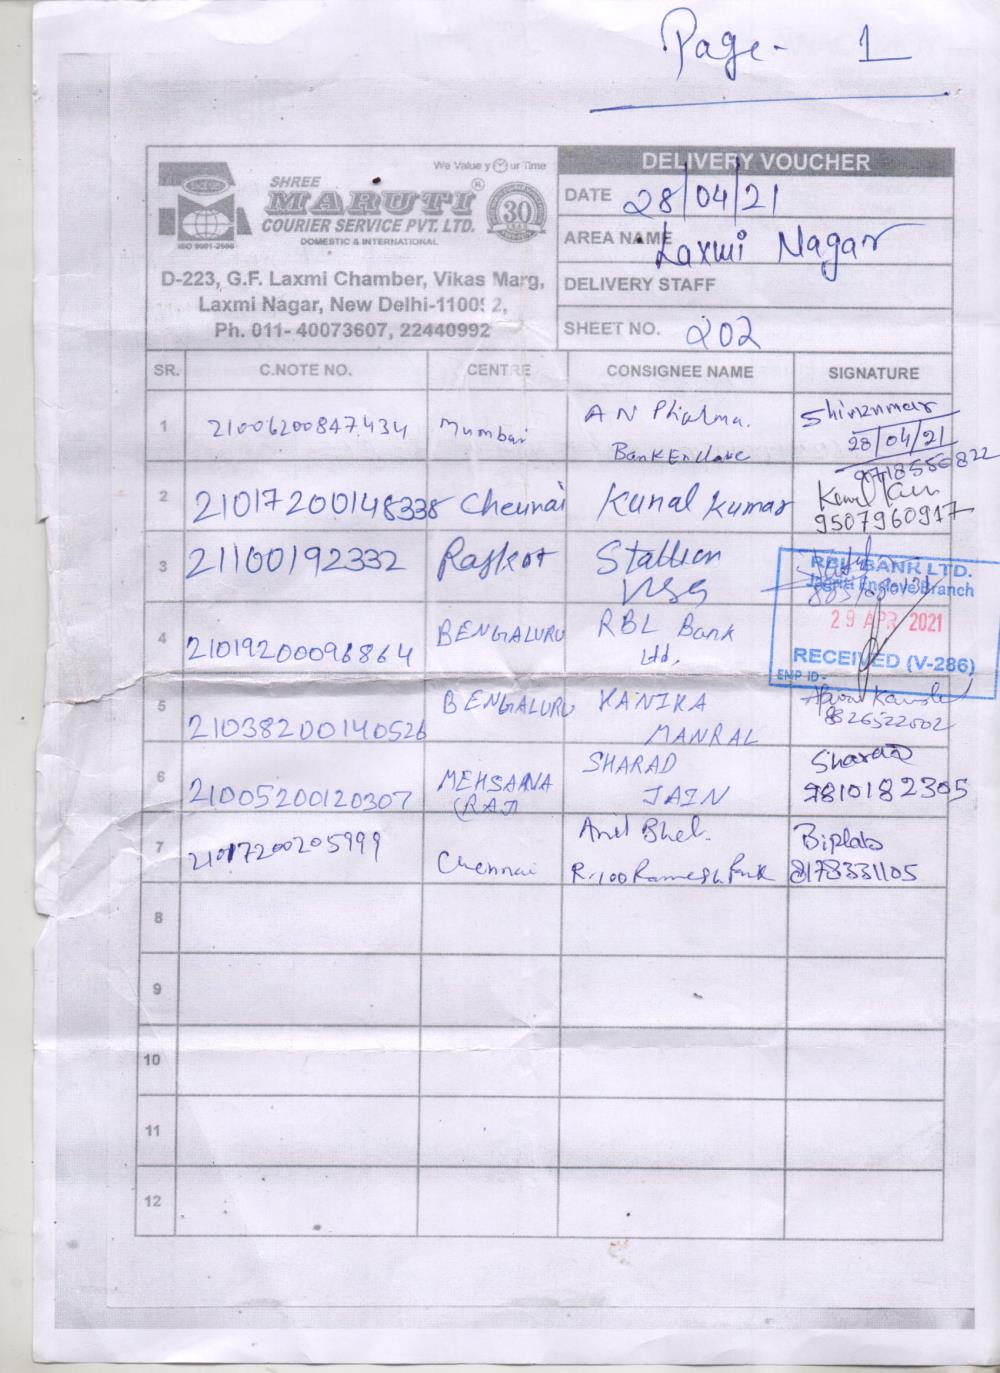 Page- 1
We Value your Time
SHREE
MARUTI®
COURIER SERVICE PVT. LTD.
DOMESTIC & INTERNATIONAL
ISO 9001-2008
30
D-223, G.F. Laxmi Chamber, Vikas Marg,
Laxmi Nagar, New Delhi-1100 2,
Ph. 011- 40073607, 22440992
DELIVERY VOUCHER
DATE 28/04/21
AREA NAME Laxmi Nagar
DELIVERY STAFF
SHEET NO. 202
SR. C.NOTE NO. CENTRE CONSIGNEE NAME SIGNATURE
1 21006200847434 Mumbai A N Pharma.
Bank Enclave
28/04/21
9718556822
2 21017200148338 Chennai Kunal Kumar
9507960917
3 21100192332 Rajkot Stallion
4 21019200096864 BENGALURU RBL Bank
Ltd.
RBL BANK LTD.
Jagriti Enclave Branch
29 APR 2021
RECEIVED (V-286)
EMP ID-
5 21038200140526 BENGALURU KANIKA
MANRAL
8826522002
6 21005200120307 MEHSANA
(RAJ)
SHARAD
JAIN
Sharad
9810182305
7 21017200205999 Chennai Anil
R-100 Ramesh Park
Biplab
8178331105
8
9
10
11
12